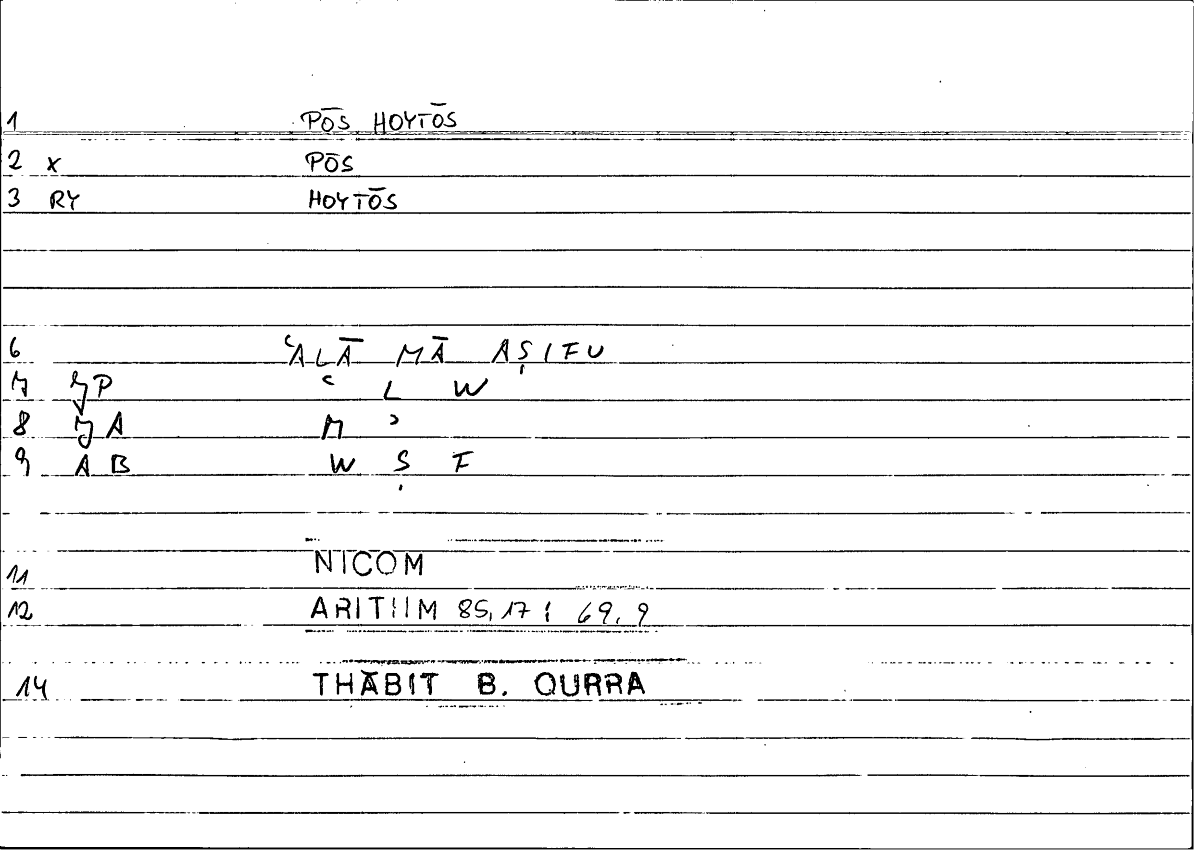 1 PŌS HOYTŌS
2 X PŌS
3 RY HOYTŌS
6 ʿALĀ MĀ AṢIFU
7 JP ʿ L W
8 JA M ʾ
9 AB W Ṣ F
11 NICOM
12 ARITHM 85,17; 69,9
14 THĀBIT B. QURRA